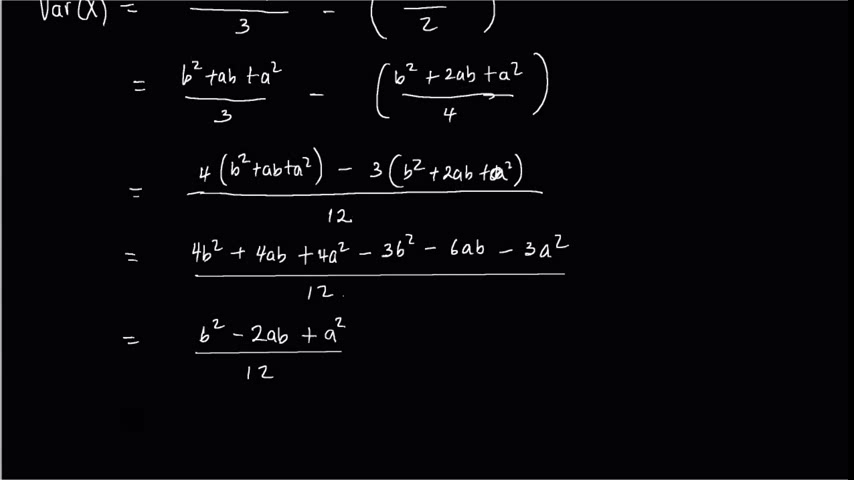 Var(X) = / 3 - ( / 2 )
= b² + ab + a² / 3 - ( b² + 2ab + a² / 4 )
= 4(b² + ab + a²) - 3(b² + 2ab + a²) / 12
= 4b² + 4ab + 4a² - 3b² - 6ab - 3a² / 12
= b² - 2ab + a² / 12